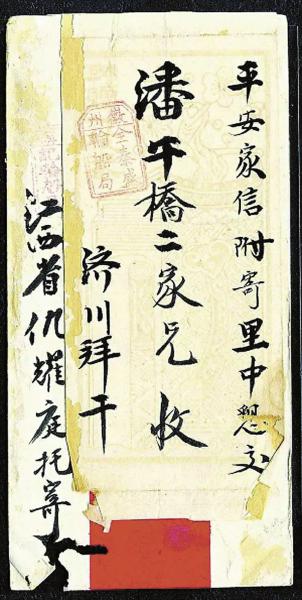 平安家信附寄里中懇交
潘午橋二家兄收
濟川拜干
江西省仇耀庭托寄
全泰盛
輪船局